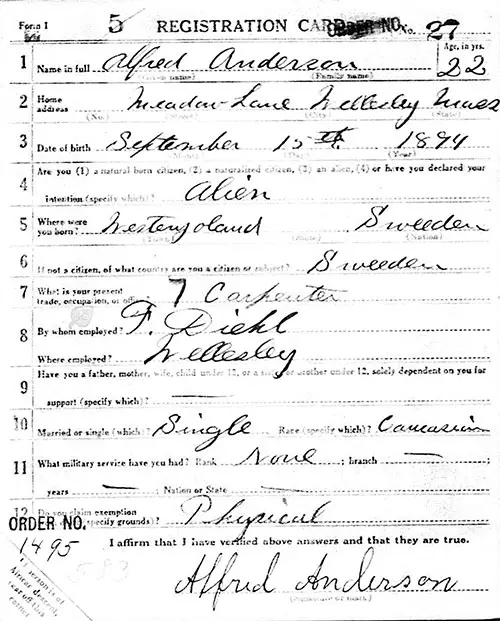 Form 1 5 REGISTRATION CARD ORDER NO. No. 27
1 Name in full Alfred Anderson Age, in yrs. 22
(Given name) (Family name)
2 Home address Meadow Lane Wellesley Mass
(No.) (Street) (City) (State)
3 Date of birth September 15th 1894
(Month) (Day) (Year)
4 Are you (1) a natural born citizen, (2) a naturalized citizen, (3) an alien, (4) or have you declared your
intention (specify which)? Alien
5 Where were you born? Westergoland Sweeden
(Town) (State) (Nation)
6 If not a citizen, of what country are you a citizen or subject? Sweeden
7 What is your present trade, occupation, or office? 7 Carpenter
8 By whom employed? F. Diehl
Where employed? Wellesley
9 Have you a father, mother, wife, child under 12, or a sister or brother under 12, solely dependent on you for
support (specify which)?
10 Married or single (which)? Single Race (specify which)? Caucasian
11 What military service have you had? Rank None ; branch
years ; Nation or State
12 Do you claim exemption (specify grounds)? Physical
ORDER NO.
1495
I affirm that I have verified above answers and that they are true.
583
If person is of
African descent,
tear off this
corner
Alfred Anderson
(Signature or mark)